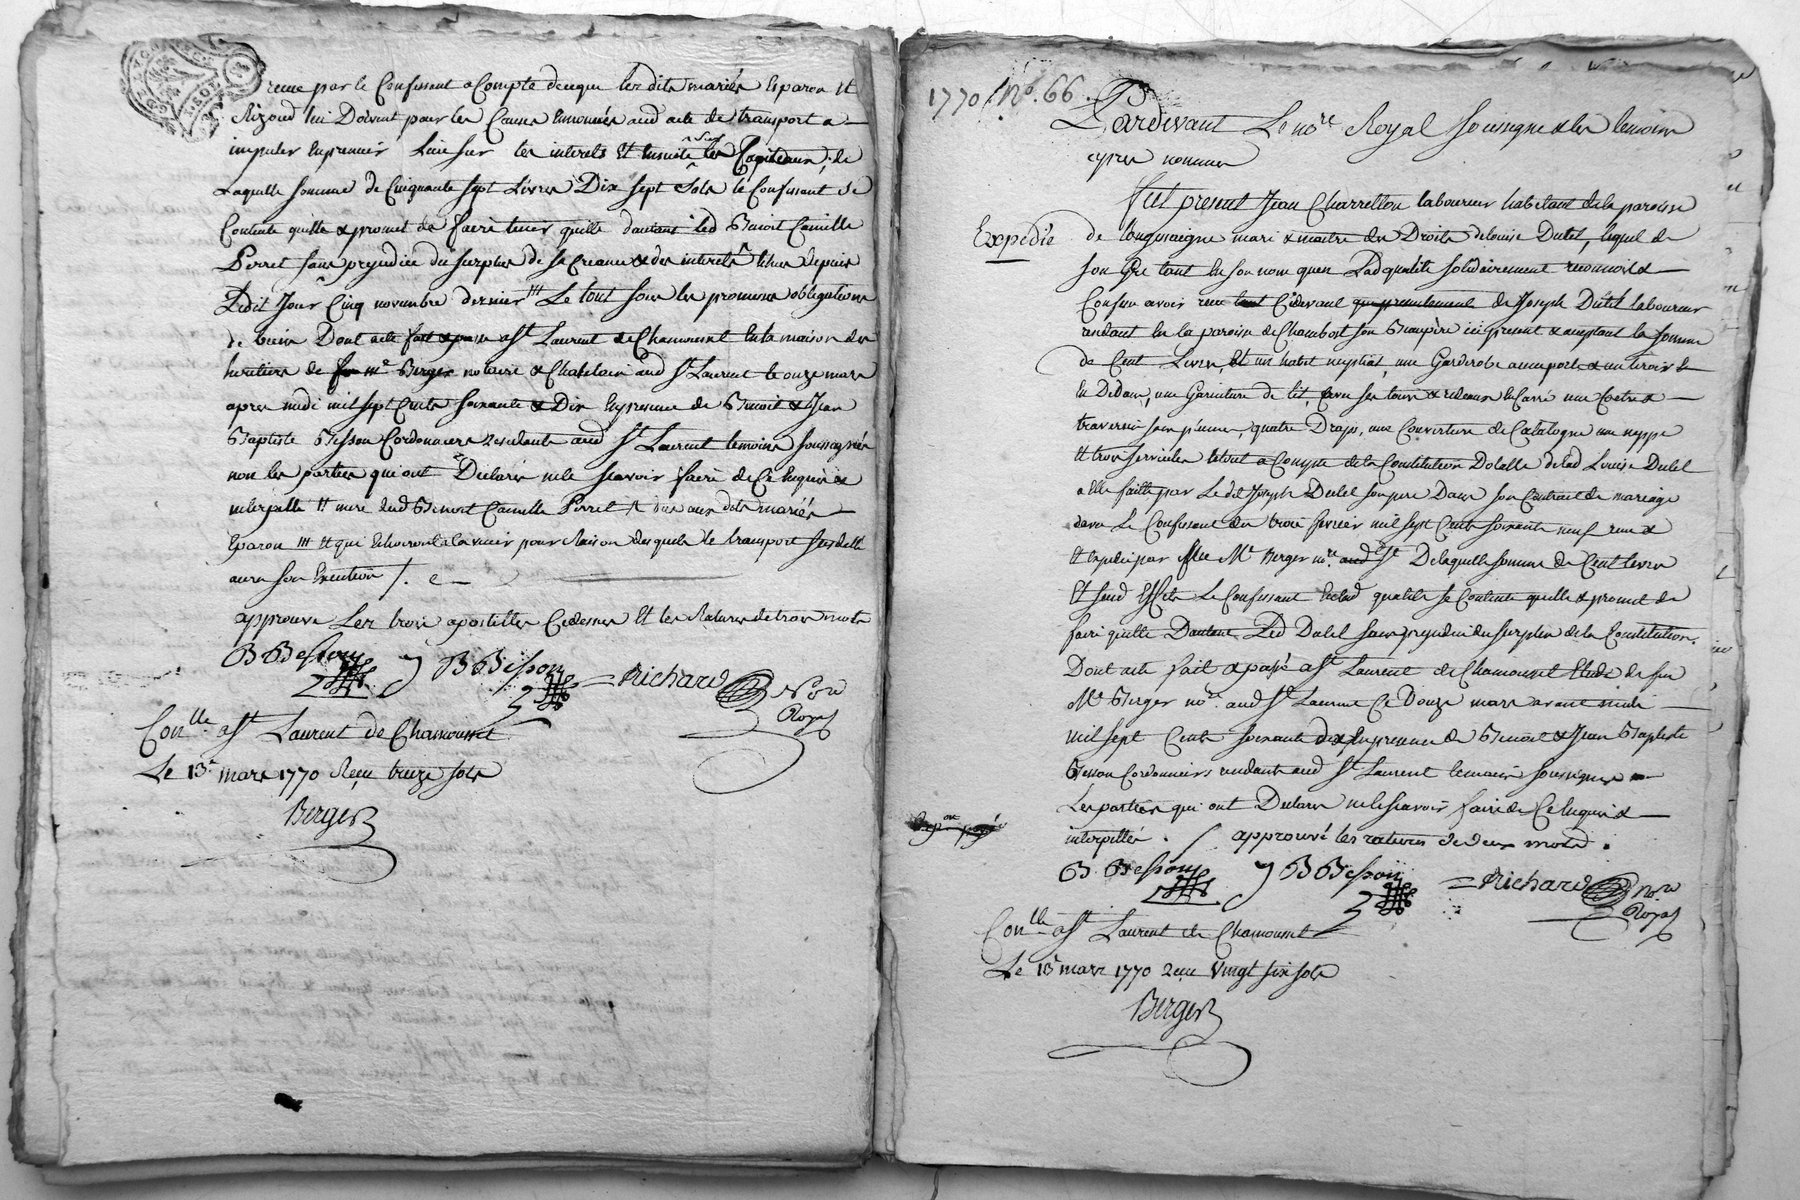 receue par le Confessant a Compte de ceque lesdits mariés Esparon Et
Rigoud lui Doivent pour les Causes Enoncées aud acte de transport a
imputer En premier Lieu sur les interets Et Ensuite sur les Capiteaux, de
Laquelle somme de Cinquante sept Livres Dix sept Sols le Confessant se
Contente quitte & promet de faire tenir quitte dautant led Benoit Camille
Perret sans prejudice du surplus de sa Creance & des interets Echus depuis
Ledit Jour Cinq novembre dernier /// Le tout sous les promesses obligations
de biens Dont acte fait & passé a St Laurent de Chamousset En la maison des
heritiers de Me Berger notaire & Chatelain aud St Laurent le onze mars
apres midi mil sept Cents soixante & Dix En presence de Benoit & Jean
Baptiste Besson Cordonniers residants aud St Laurent temoins soussignés
non les parties qui ont Declaré ne le sçavoir faire de Ce Enquis &
interpellé Et mere dud Benoit Camille Perret dus aux dits mariés
Esparon /// Et qui Echoiront a lavenir pour Raison desquels le transport susdatté
aura son Execution /.
approuvé Les trois apostilles Cydessus Et les Ratures de trois mots
B Besson J B Besson Richard Nore
Royal
Conlle a St Laurent de Chamousset
Le 13e mars 1770 Reçu treize sols
Berger
1770 / No. 66.
Pardevant Le nore Royal soussigné & les temoins
cyapres nommés
Expedié
Fut present Jean Charretton laboureur habitant de la paroisse
de Longessaigne mari & maitre des Droits de Louise Dutel, lequel de
son Gré tant En son nom quen Ladqualité solidairement reconnoit &
Confesse avoir receu Cidevant de Joseph Dutel laboureur
residant En la paroisse de Chambost son Beaupère ici present & acceptant la somme
de Cent Livres, Et un habit nuptial, une Garderobe a une porte & un tiroir
En Dedans, une Garniture de lit, avec ses tours & rideaux En Carré une Coetre &
traversin sans plume, quatre Draps, une Couverture de Catalogne une nappe
Et trois serviettes Letout a Compte de la Constitution Dotalle delad Louise Dutel
a Elle faitte par Le dit Joseph Dutel son pere Dans son Contrat de mariage
avec Le Confessant du trois fevrier mil sept Cents soixante neuf receu &
Et Expedié par Me Berger nre. De laquelle somme de Cent Livres
Et susd Effets Le Confessant Esdqualités se Contente quitte & promet de
faire quitte Dautant Led Dutel sans prejudice du surplus de la Constitution.
Dont acte fait & passé a St Laurent de Chamousset Etude de feu
Me Berger nore. aud St Laurent Ce Douze mars avant midi
mil sept Cents soixante dix En presence de Benoit & Jean Baptiste
Besson Cordonniers residants aud St Laurent temoins soussignés
Les parties qui ont Declaré ne le sçavoir faire de Ce Enquis &
interpellés. / approuvé les ratures de deux mots.
B Besson J B Besson Richard Nre
Royal
Conlle a St Laurent de Chamousset
Le 13e mars 1770 Reçu Vingt six sols
Berger